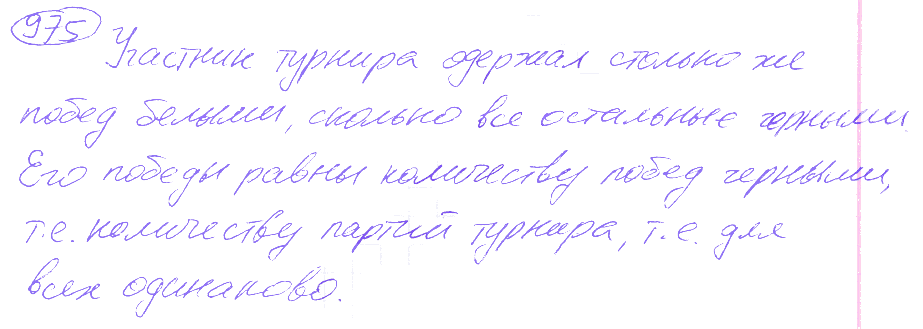 975
Участник турнира одержал столько же
побед белыми, сколько все остальные черными.
Его победы равны количеству побед черными,
т.е. количеству партий турнира, т.е. для
всех одинаково.